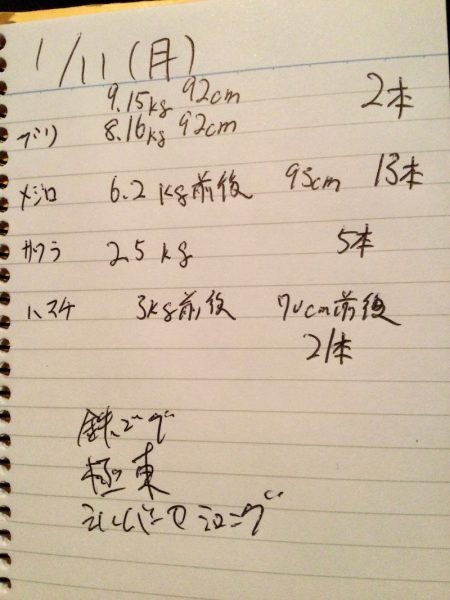 1/11(月)
9.15kg 92cm 2本
ブリ 8.16kg 92cm
メジロ 6.2kg前後 95cm 13本
サワラ 2.5kg 5本
ハマチ 3kg前後 70cm前後
21本
鉄ジグ
極東
シルバーロング